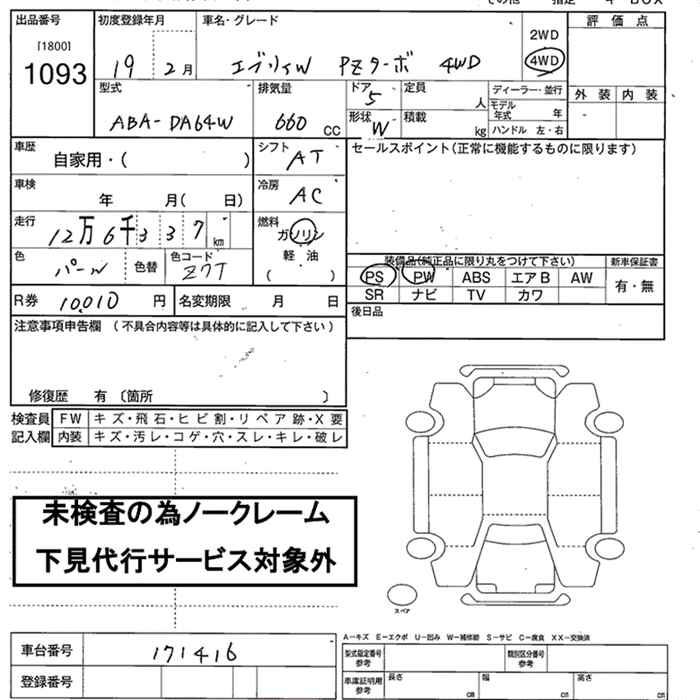 その他 指定 4 BOX
出品番号 初度登録年月 車名・グレード 評価点
[1800]
1093
19 2月 エブリィW PZターボ 4WD
2WD
4WD
外装 内装
型式 排気量 ドア 定員 ディーラー・並行
5 人
モデル年式 年
ABA-DA64W 660 CC 形状 W 積載 kg ハンドル 左・右
車歴 自家用・( ) シフト AT セールスポイント(正常に機能するものに限ります)
車検 年 月( 日) 冷房 AC
走行 12万6千337km 燃料 ガソリン
軽油
( )
色 パール 色替 色コード Z7T
装備品(純正品に限り丸をつけて下さい) 新車保証書
PS PW ABS エアB AW 有・無
SR ナビ TV カワ
R券 10,010 円 名変期限 月 日
後日品
注意事項申告欄 (不具合内容等は具体的に記入して下さい)
修復歴 有 〔箇所 〕
検査員 FW キズ・飛石・ヒビ割・リペア跡・X要
記入欄 内装 キズ・汚レ・コゲ・穴・スレ・キレ・破レ
未検査の為ノークレーム
下見代行サービス対象外
スペア
A―キズ E―エクボ U―凹み W―補修跡 S―サビ C―腐食 XX―交換済
車台番号 171416
型式指定番号 参考 類別区分番号 参考
登録番号
車庫証明用 参考 長さ cm 幅 cm 高さ cm